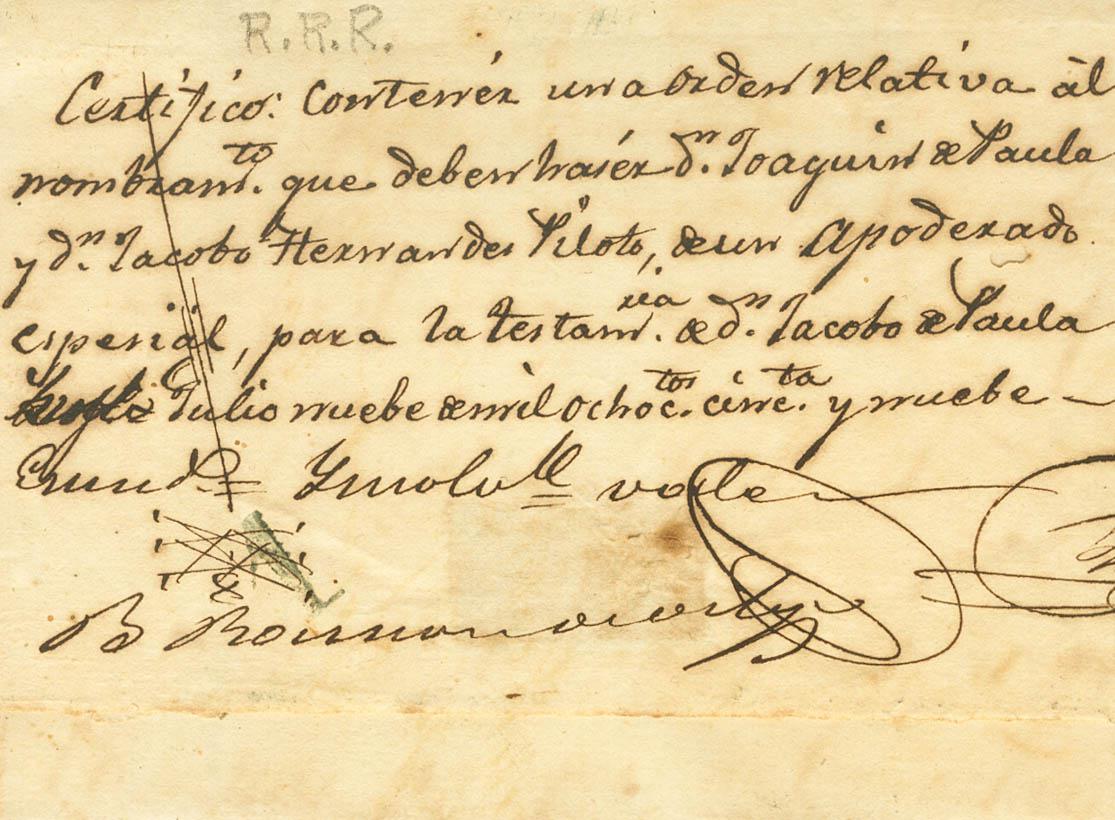 R.R.R.
Certifico: contenér una orden relativa ál
nombramto. que deben hasér dn. Joaquin de Paula
y dn. Jacobo Hernandes Piloto, de un apoderado
espesiál, para la testamría. de dn. Jacobo de Paula
Julio nuebe de mil ochoctos. cincta. y nuebe
Enmdo. vale